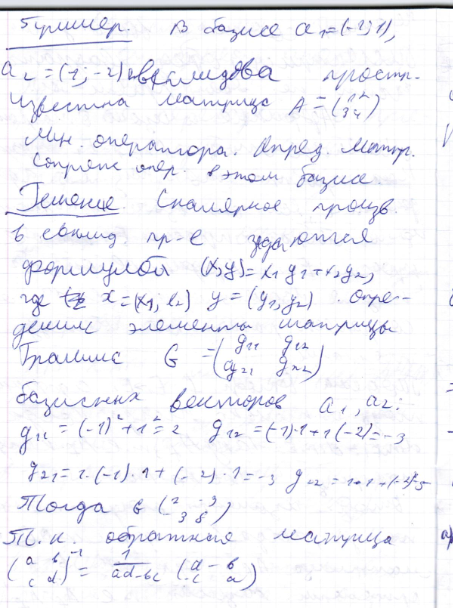 Пример. В базисе a₁=(-1,1),
a₂=(1,-2) евклидова простр.
известна матрица A=(1 2 / 3 4)
лин. оператора. Опред. матр.
сопряж опер. в этом базисе
Решение Скалярное произв.
в евклид пр-е задаются
формулой (x,y)=x₁y₁+x₂y₂,
где x=(x₁; x₂) y=(y₁,y₂). Опре-
делим элементы матрицы
Грамма G=(g₁₁ g₁₂ / g₂₁ g₂₂)
базисных векторов a₁, a₂:
g₁₁=(-1)²+1²=2 g₁₂=(-1)·1+1(-2)=-3
g₂₁=1·(-1)·1+(-2)·1=-3 g₂₂=1·1+(-2)²=5
Тогда G(2 -3 / 3 5)
Т.к. обратная матрица
(a b / c d)⁻¹= 1/(ad-bc) (d -b / -c a)